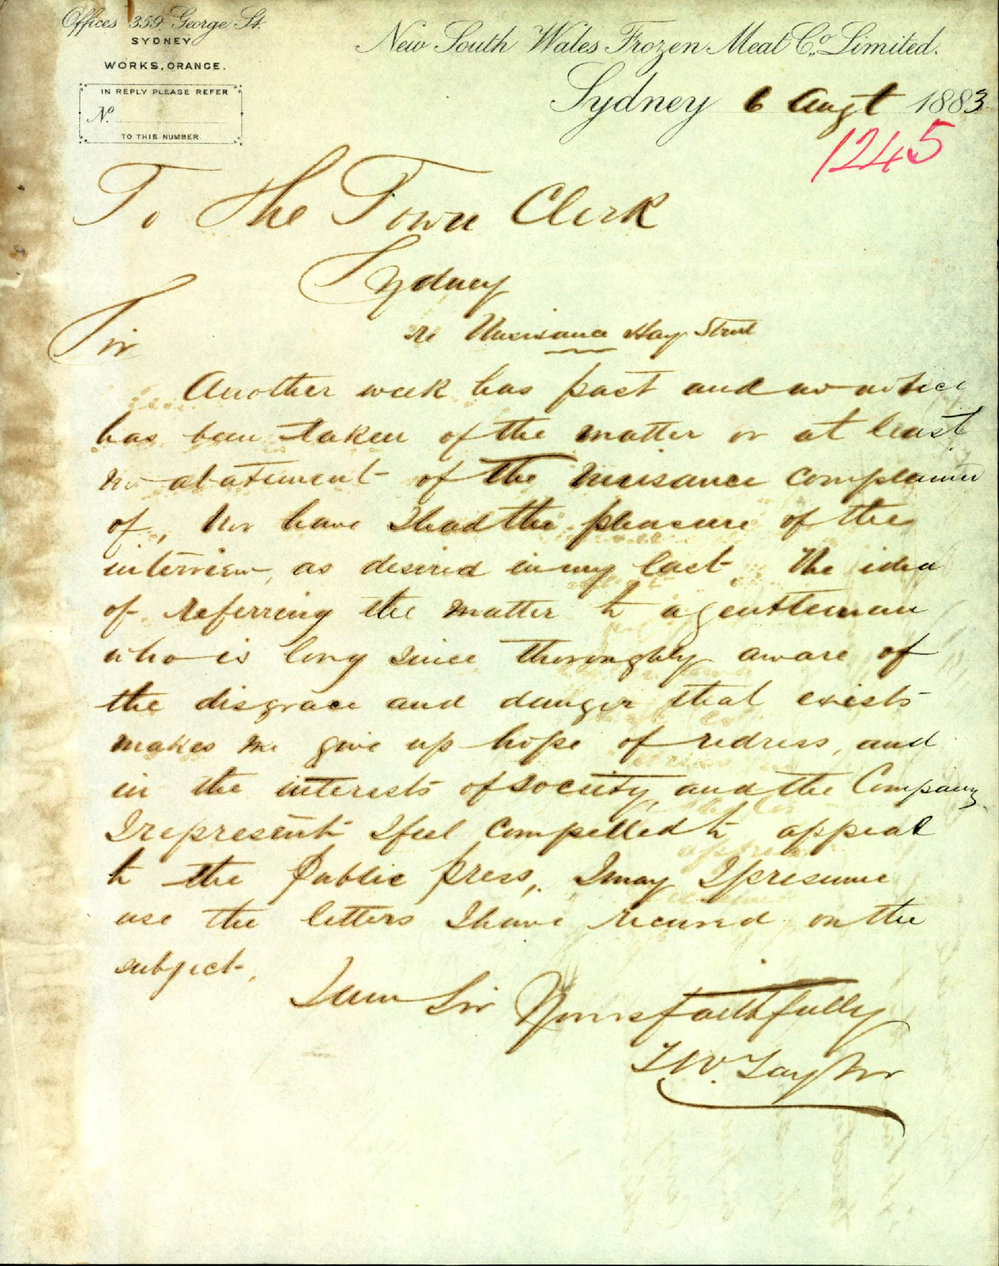 Offices 359. George St.
SYDNEY
WORKS, ORANGE.
IN REPLY PLEASE REFER
No.
TO THIS NUMBER.
New South Wales Frozen Meat Co. Limited.
Sydney 6 Augt 1883
1245
To The Town Clerk
Sydney
Sir
re Nuisance Hay Street
Another week has past and no notice
has been taken of the matter or at least
no abatement of the nuisance complained
of, nor have I had the pleasure of the
interview, as desired in my last. The idea
of referring the matter to a gentleman
who is long since thoroughly aware of
the disgrace and danger that exists
makes me give up hope of redress, and
in the interests of society, and the Company
I represent I feel compelled to appeal
to the Public press, I may I presume
use the letters I have received on the
subject,
I am Sir Yours faithfully
Taylor